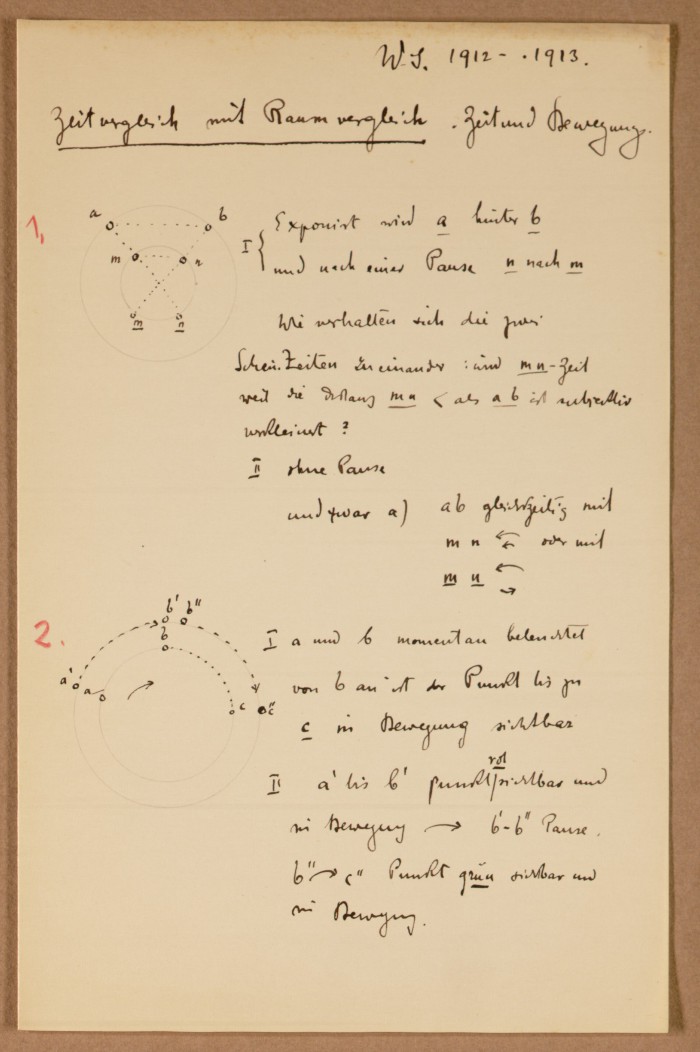 W.S. 1912 - . 1913.
Zeitvergleich mit Raumvergleich . Zeit und Bewegung.
1,
a b
m n
m n
I { Exponirt wird a hinter b
und nach einer Pause n nach m
Wie verhalten sich die zwei
Zeiten zu einander : wird mn-Zeit
weil die Distanz mn < als ab ist
verkleinert ?
II ohne Pause
und zwar a) ab gleichzeitig mit
m n oder mit
m n
2.
b' b''
b
a' a c c''
I a und b momentan beleuchtet
von b an ist der Punkt bis zu
c in Bewegung sichtbar
II a' bis b' punkt rot sichtbar und
in Bewegung → b'-b'' Pause.
b'' → c'' Punkt grün sichtbar und
in Bewegung.